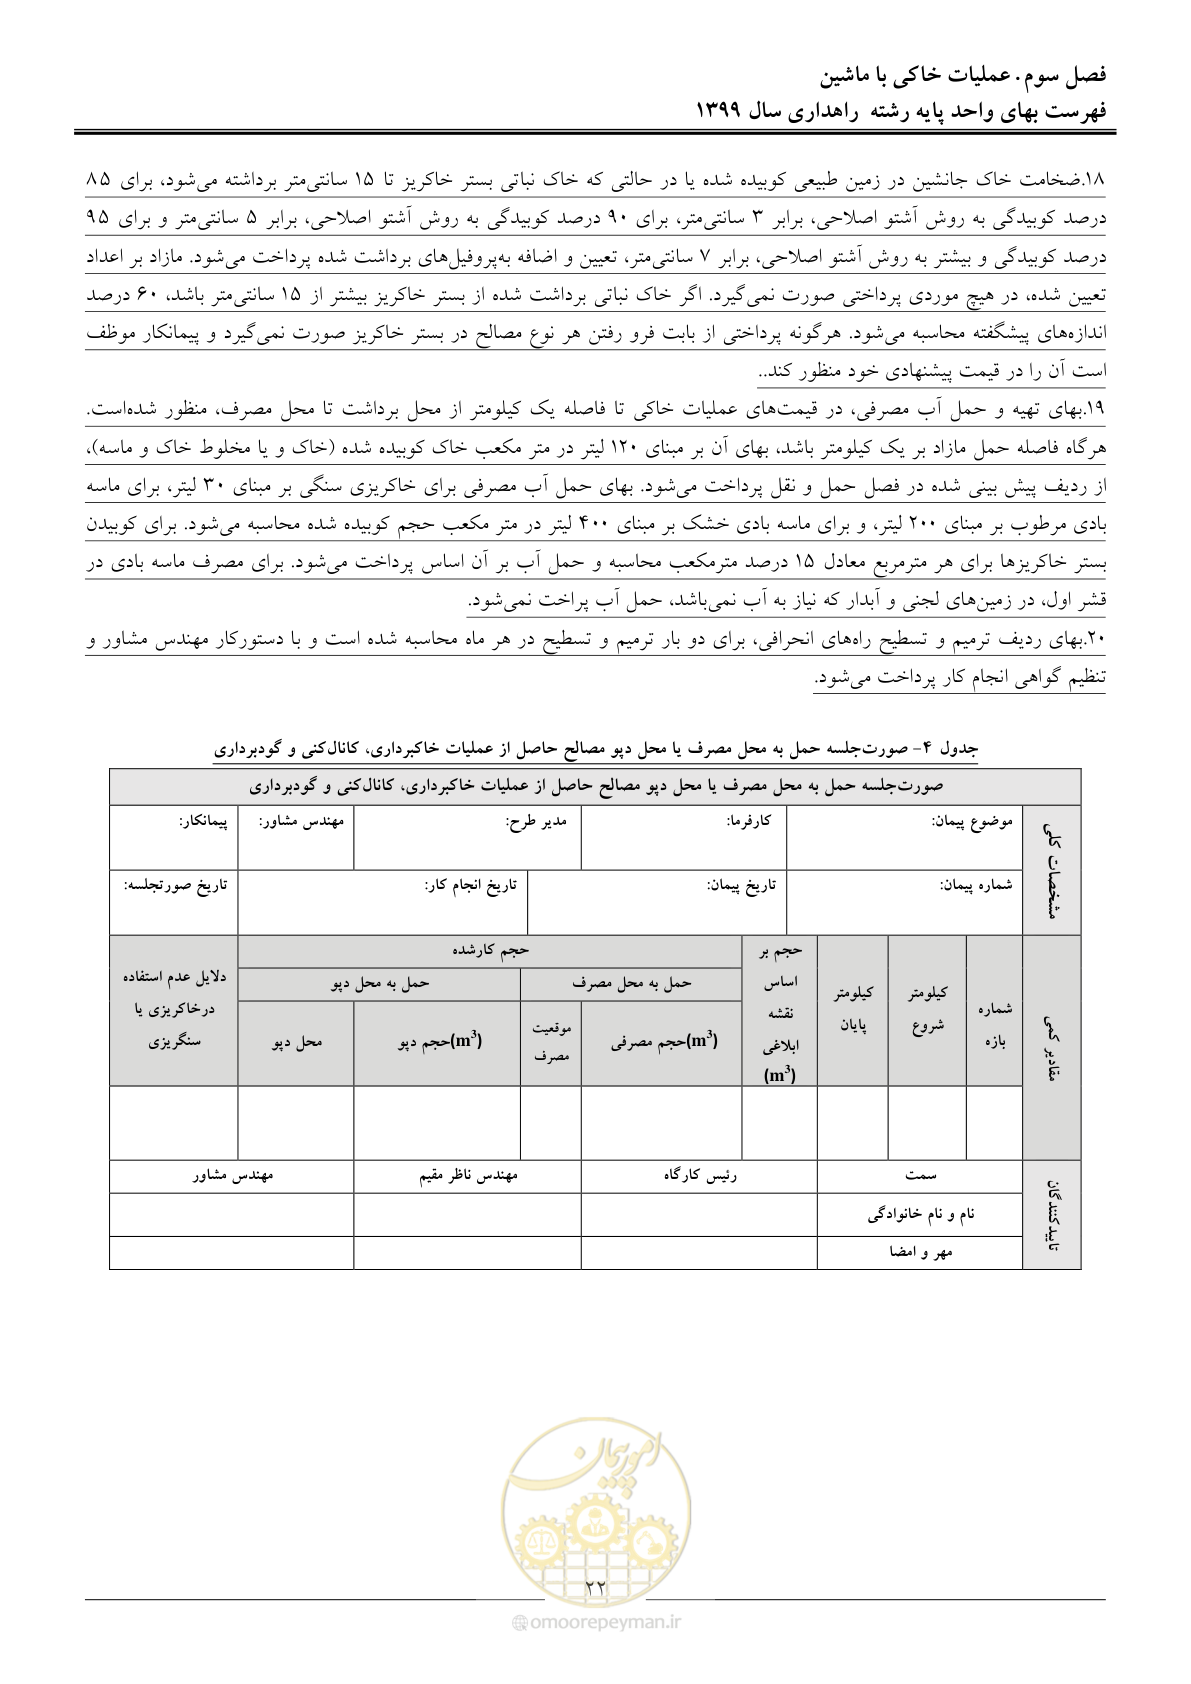 فصل سوم. عملیات خاکی با ماشین
فهرست بهای واحد پایه رشته راهداری سال ۱۳۹۹
۱۸.ضخامت خاک جانشین در زمین طبیعی کوبیده شده یا در حالتی که خاک نباتی بستر خاکریز تا ۱۵ سانتی‌متر برداشته می‌شود، برای ۸۵
درصد کوبیدگی به روش آشتو اصلاحی، برابر ۳ سانتی‌متر، برای ۹۰ درصد کوبیدگی به روش آشتو اصلاحی، برابر ۵ سانتی‌متر و برای ۹۵
درصد کوبیدگی و بیشتر به روش آشتو اصلاحی، برابر ۷ سانتی‌متر، تعیین و اضافه به‌پروفیل‌های برداشت شده پرداخت می‌شود. مازاد بر اعداد
تعیین شده، در هیچ موردی پرداختی صورت نمی‌گیرد. اگر خاک نباتی برداشت شده از بستر خاکریز بیشتر از ۱۵ سانتی‌متر باشد، ۶۰ درصد
اندازه‌های پیشگفته محاسبه می‌شود. هرگونه پرداختی از بابت فرو رفتن هر نوع مصالح در بستر خاکریز صورت نمی‌گیرد و پیمانکار موظف
است آن را در قیمت پیشنهادی خود منظور کند..
۱۹.بهای تهیه و حمل آب مصرفی، در قیمت‌های عملیات خاکی تا فاصله یک کیلومتر از محل برداشت تا محل مصرف، منظور شده‌است.
هرگاه فاصله حمل مازاد بر یک کیلومتر باشد، بهای آن بر مبنای ۱۲۰ لیتر در متر مکعب خاک کوبیده شده (خاک و یا مخلوط خاک و ماسه)،
از ردیف پیش بینی شده در فصل حمل و نقل پرداخت می‌شود. بهای حمل آب مصرفی برای خاکریزی سنگی بر مبنای ۳۰ لیتر، برای ماسه
بادی مرطوب بر مبنای ۲۰۰ لیتر، و برای ماسه بادی خشک بر مبنای ۴۰۰ لیتر در متر مکعب حجم کوبیده شده محاسبه می‌شود. برای کوبیدن
بستر خاکریزها برای هر مترمربع معادل ۱۵ درصد مترمکعب محاسبه و حمل آب بر آن اساس پرداخت می‌شود. برای مصرف ماسه بادی در
قشر اول، در زمین‌های لجنی و آبدار که نیاز به آب نمی‌باشد، حمل آب پراخت نمی‌شود.
۲۰.بهای ردیف ترمیم و تسطیح راه‌های انحرافی، برای دو بار ترمیم و تسطیح در هر ماه محاسبه شده است و با دستورکار مهندس مشاور و
تنظیم گواهی انجام کار پرداخت می‌شود.
جدول ۴- صورت‌جلسه حمل به محل مصرف یا محل دپو مصالح حاصل از عملیات خاکبرداری، کانال‌کنی و گودبرداری
صورت‌جلسه حمل به محل مصرف یا محل دپو مصالح حاصل از عملیات خاکبرداری، کانال‌کنی و گودبرداری
مشخصات کلی
موضوع پیمان: کارفرما: مدیر طرح: مهندس مشاور: پیمانکار:
شماره پیمان: تاریخ پیمان: تاریخ انجام کار: تاریخ صورتجلسه:
مقادیر کمی
شماره
بازه
کیلومتر
شروع
کیلومتر
پایان
حجم بر
اساس
نقشه
ابلاغی
(m³)
حجم کارشده
حمل به محل مصرف
حمل به محل دپو
حجم مصرفی(m³)
موقعیت
مصرف
حجم دپو(m³)
محل دپو
دلایل عدم استفاده
درخاکریزی یا
سنگریزی
تاییدکنندگان
سمت رئیس کارگاه مهندس ناظر مقیم مهندس مشاور
نام و نام خانوادگی
مهر و امضا
امور پیمان
۲۲
omoorepeyman.ir